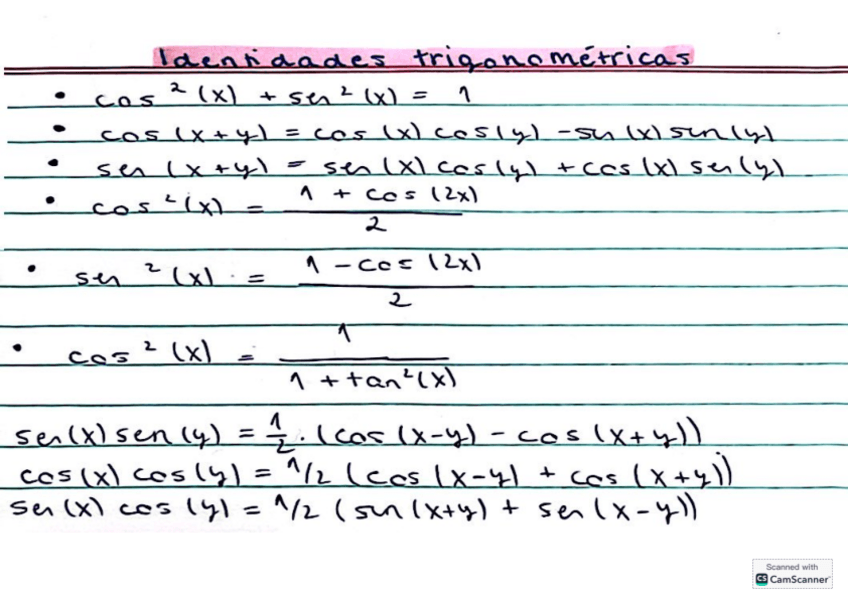 Identidades trigonométricas
• cos²(x) + sen²(x) = 1
• cos(x+y) = cos(x)cos(y) - sen(x)sen(y)
• sen(x+y) = sen(x)cos(y) + cos(x)sen(y)
• cos²(x) = (1 + cos(2x))/2
• sen²(x) = (1 - cos(2x))/2
• cos²(x) = 1/(1 + tan²(x))
sen(x)sen(y) = 1/2 · (cos(x-y) - cos(x+y))
cos(x)cos(y) = 1/2 (cos(x-y) + cos(x+y))
sen(x)cos(y) = 1/2 (sen(x+y) + sen(x-y))
Scanned with
CS CamScanner